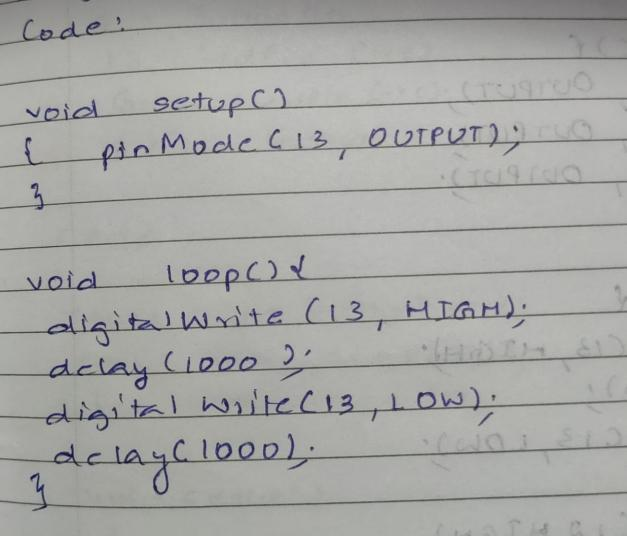 Code:
void setup()
{ pinMode (13, OUTPUT);
}
void loop() {
digitalWrite (13, HIGH);
delay (1000 );
digital Write (13, LOW);
delay (1000);
}